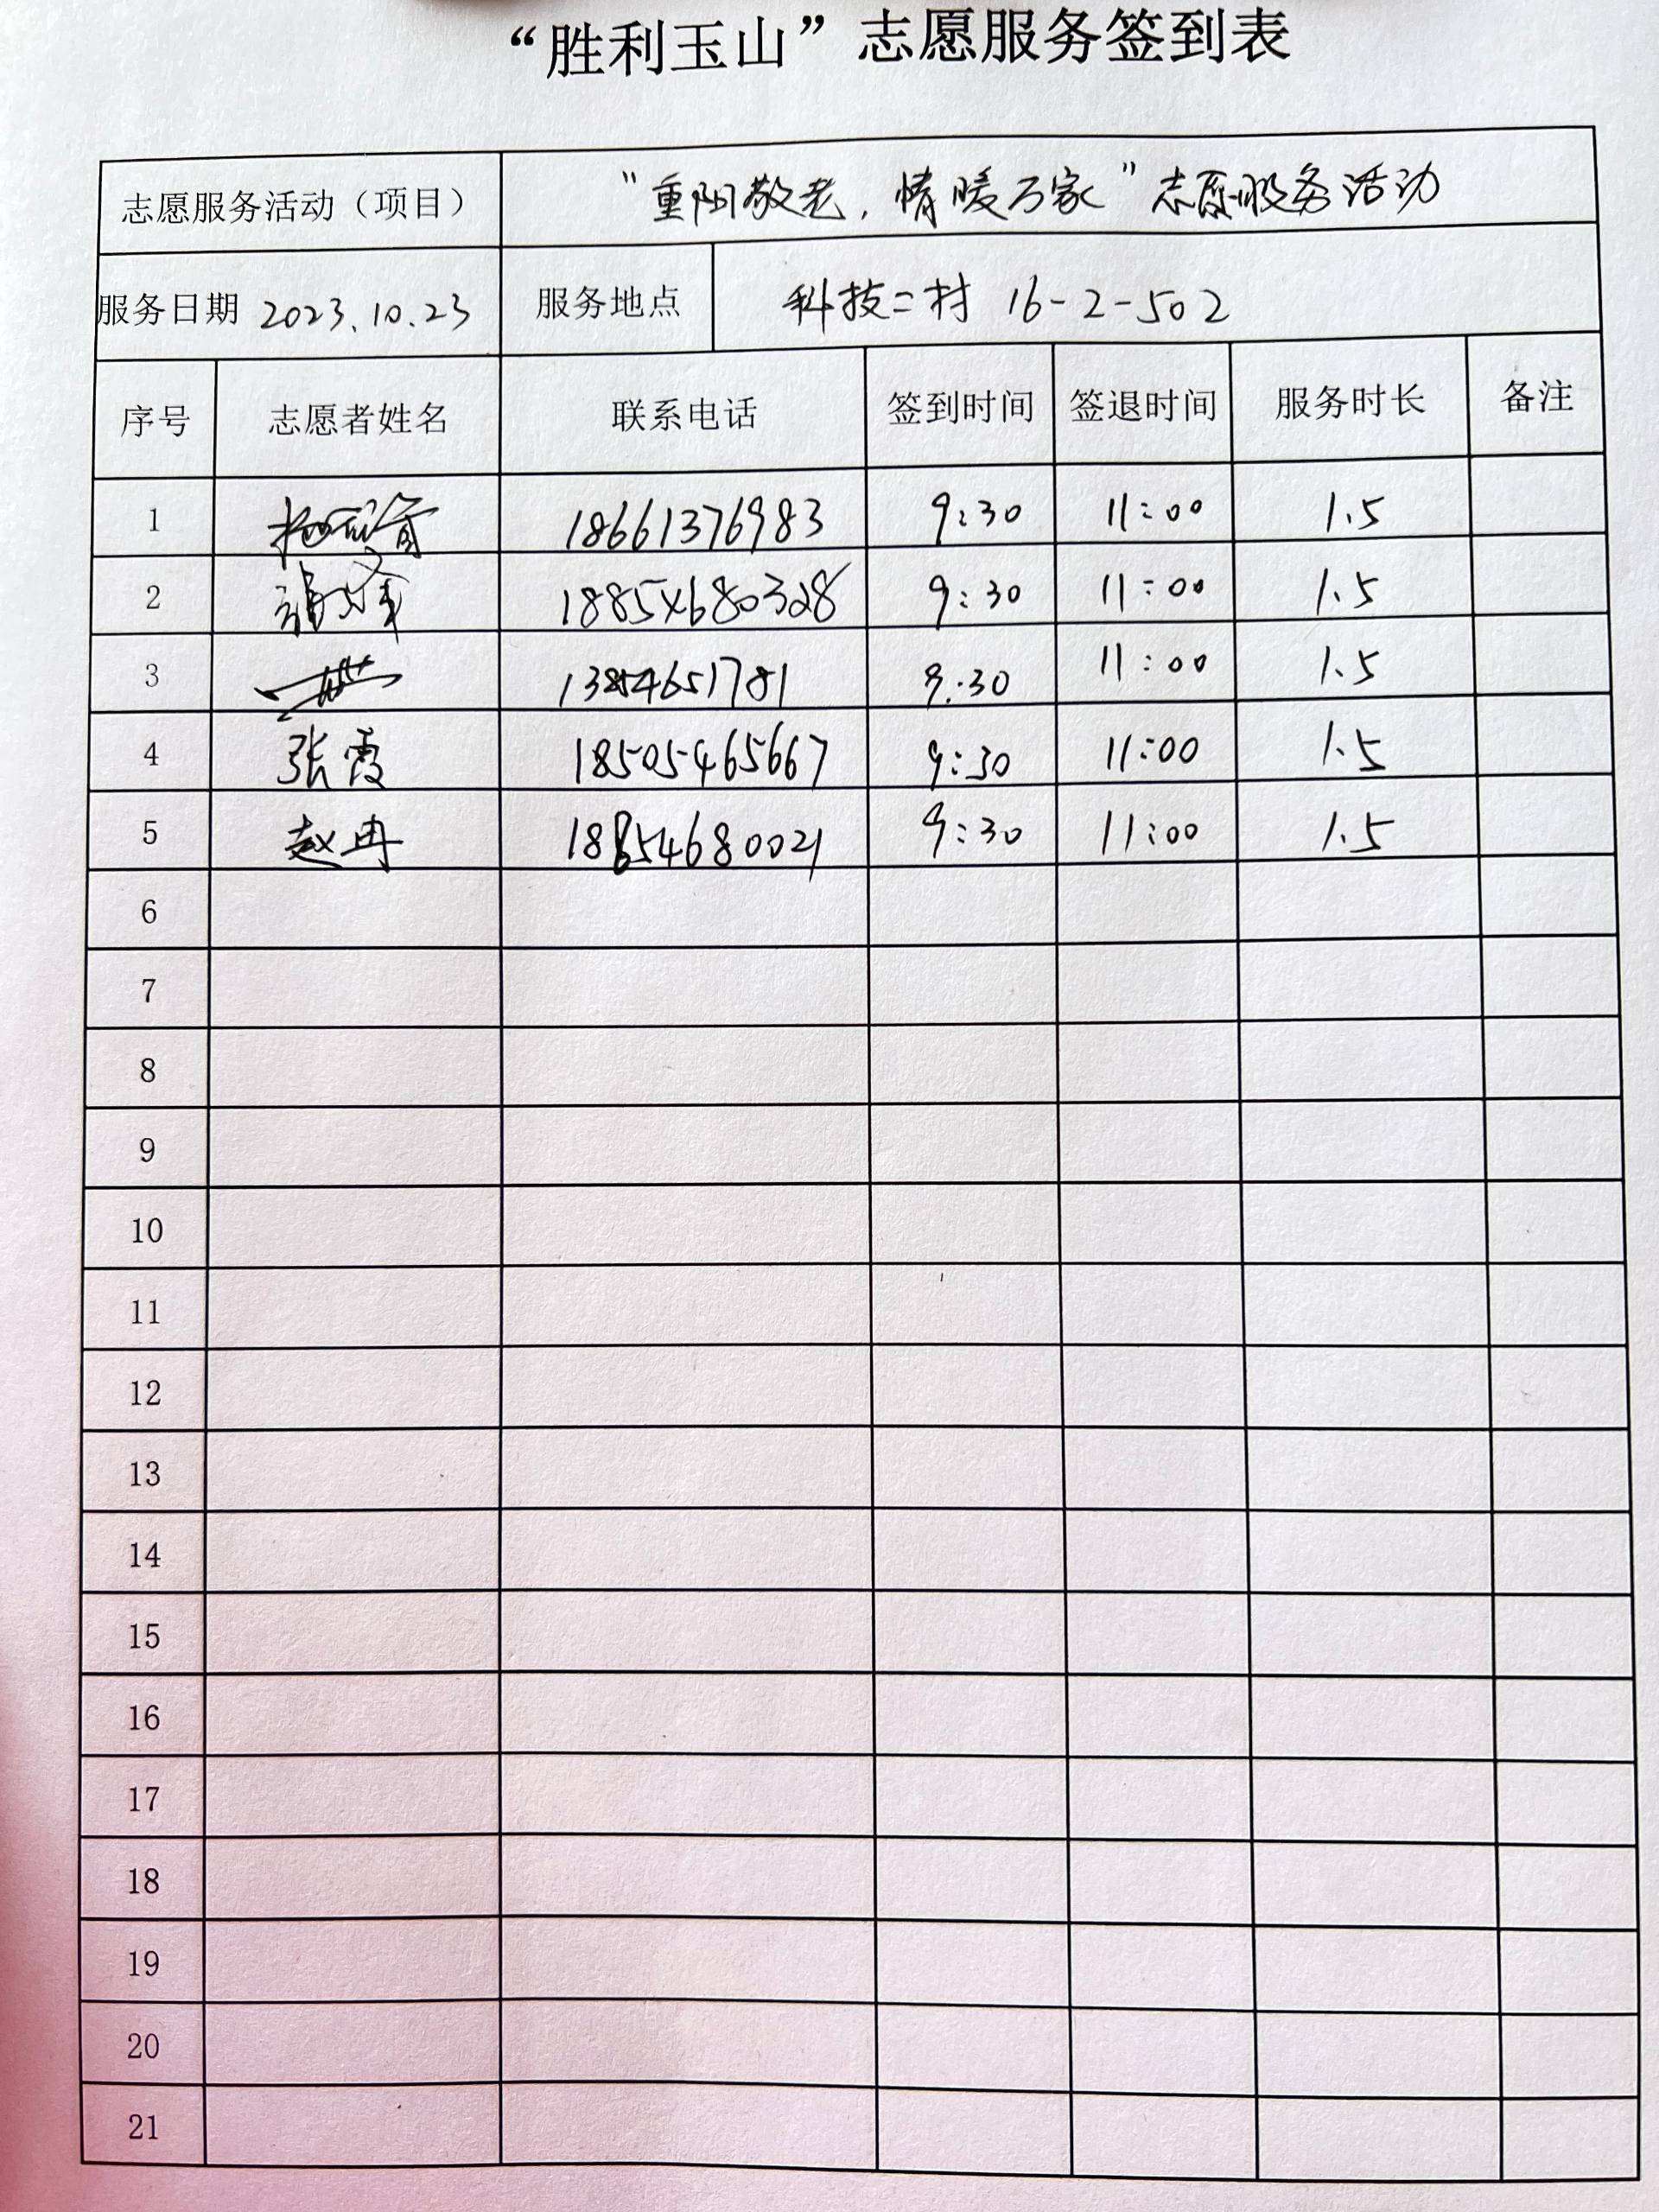 “胜利玉山”志愿服务签到表
志愿服务活动（项目） “重阳敬老，情暖万家”志愿服务活动
服务日期 2023.10.23 服务地点 科技二村 16-2-502
序号 志愿者姓名 联系电话 签到时间 签退时间 服务时长 备注
1 18661376983 9:30 11:00 1.5
2 18854680328 9:30 11:00 1.5
3 13854651781 9:30 11:00 1.5
4 张霞 18505465667 9:30 11:00 1.5
5 赵冉 18854680021 9:30 11:00 1.5
6
7
8
9
10
11
12
13
14
15
16
17
18
19
20
21